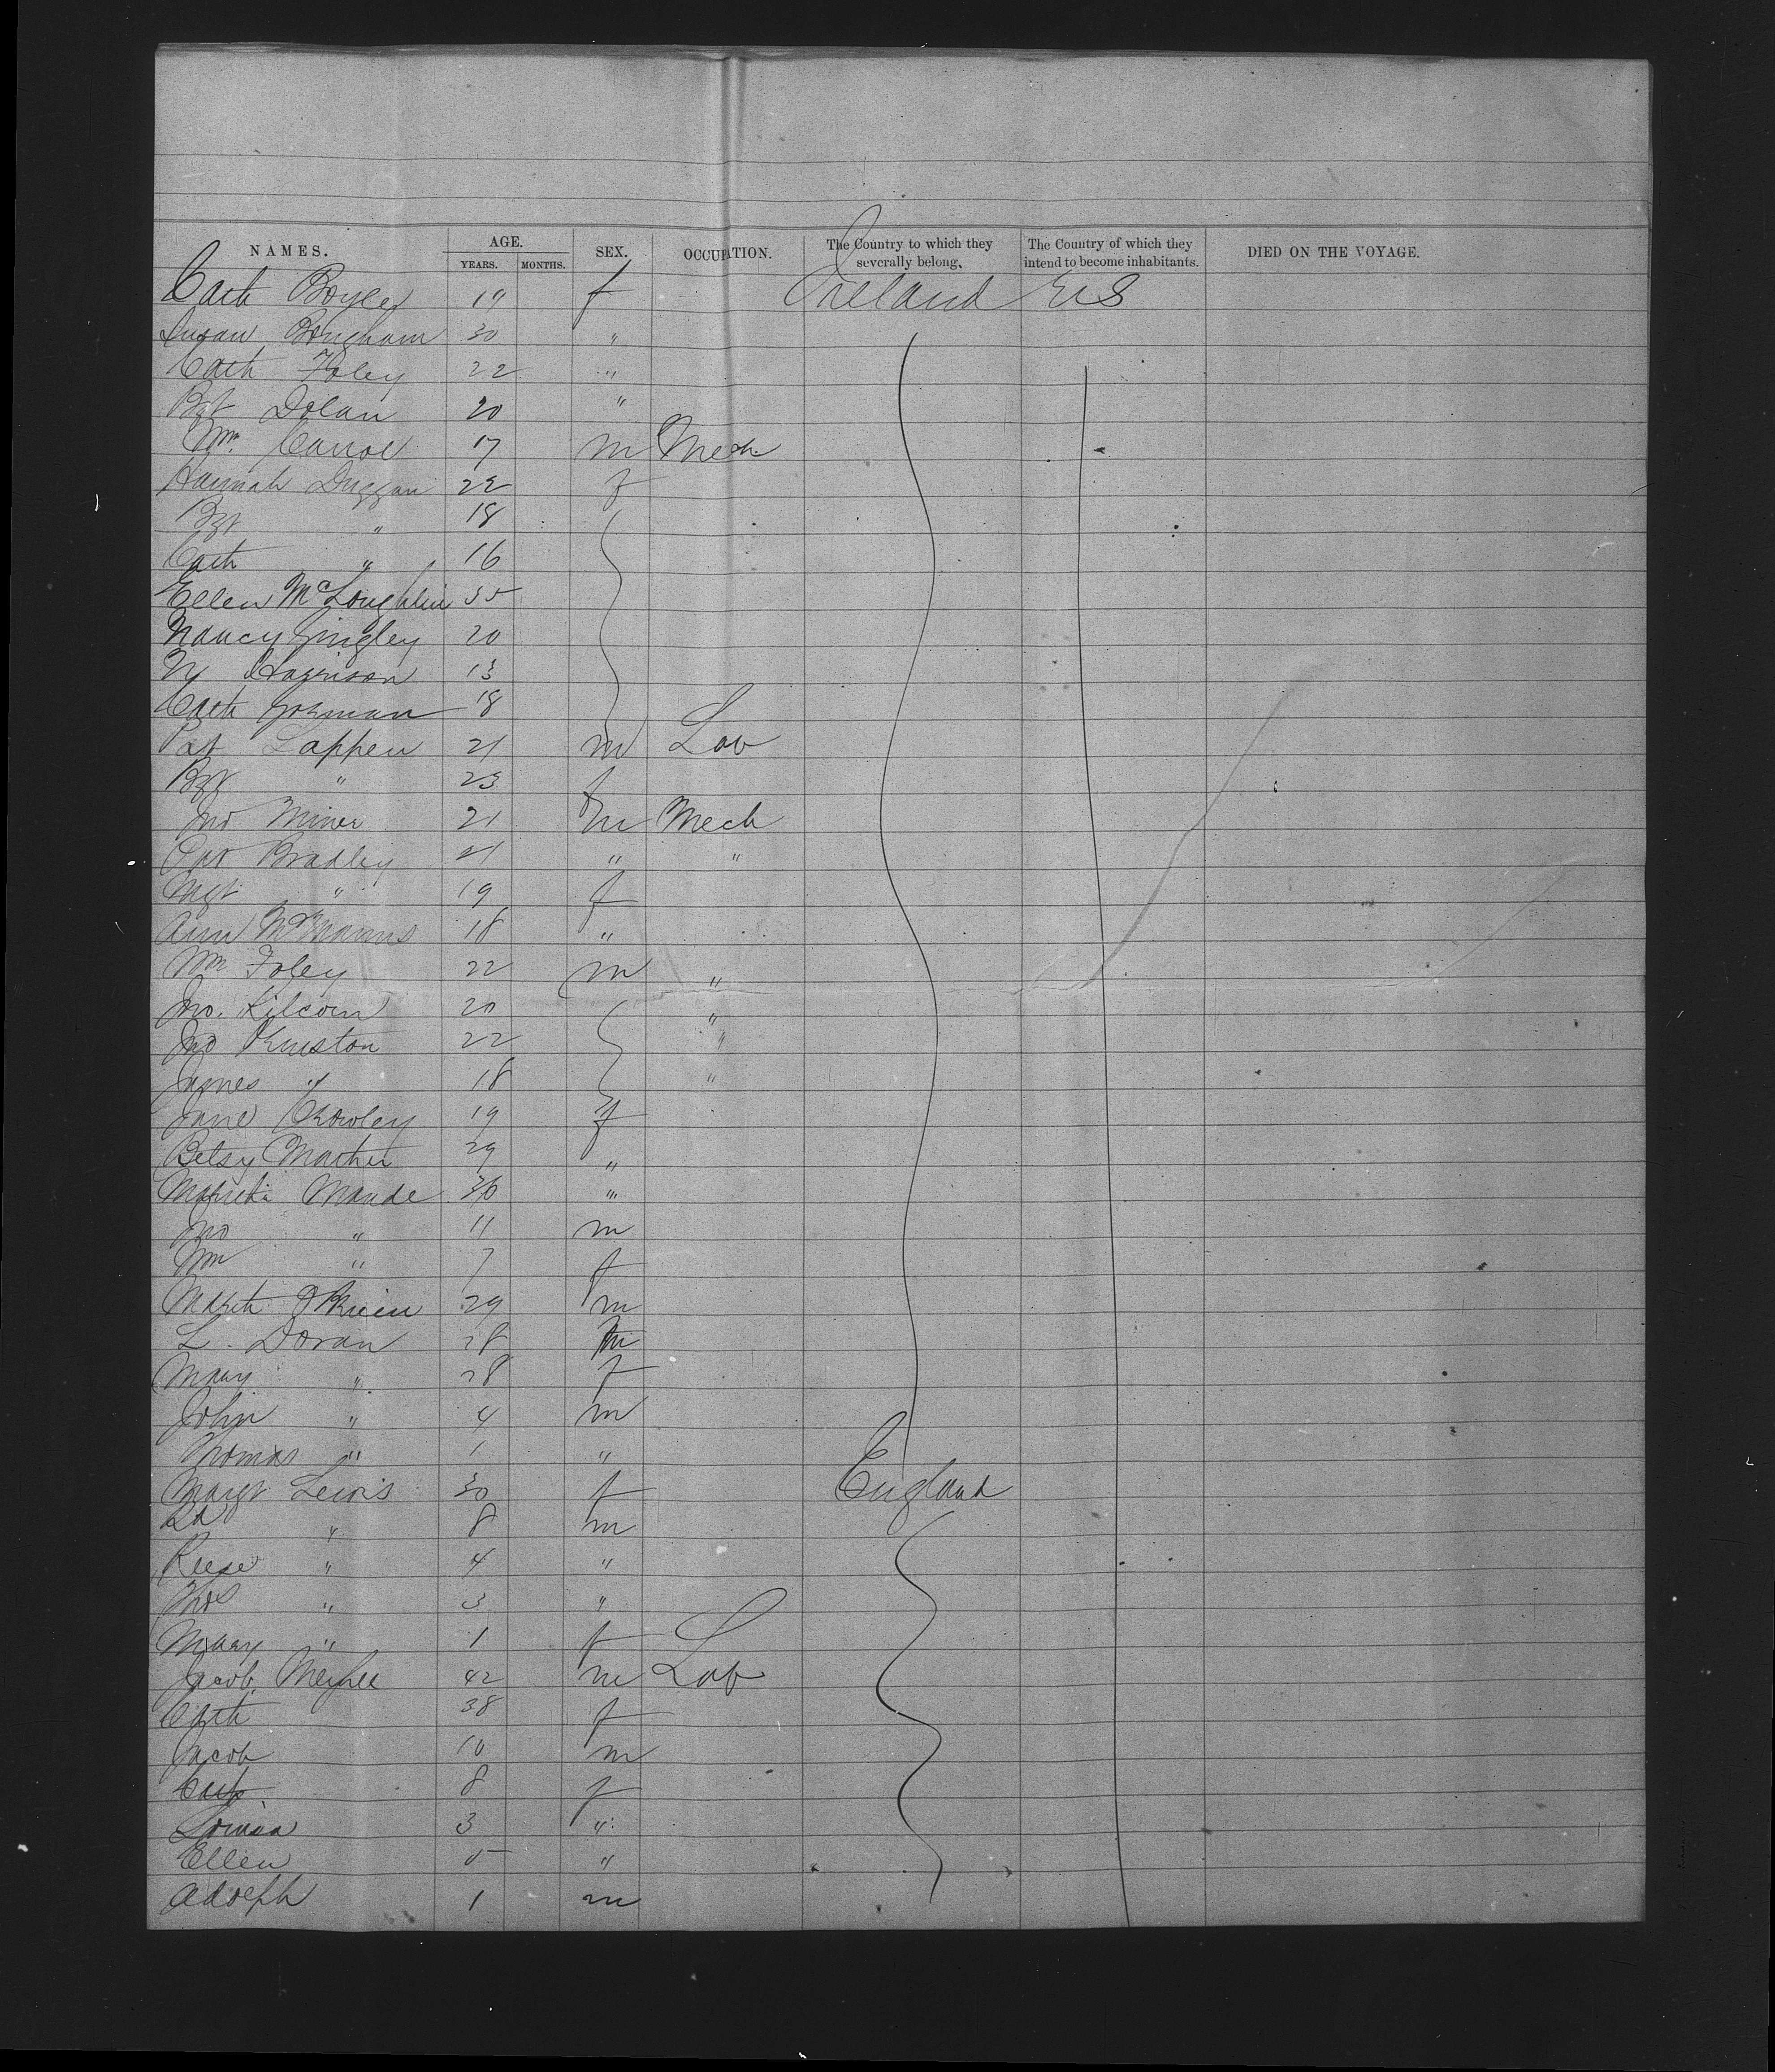 NAMES. AGE. SEX. OCCUPATION. The Country to which they severally belong. The Country of which they intend to become inhabitants. DIED ON THE VOYAGE.
YEARS. MONTHS.
Cath Boyle 19 f Ireland U S
Susan Bingham 30 "
Cath Foley 22 "
Bgt Dolan 20 "
Wm. Carrol 17 m Mech
Hannah Duggan 22 f
Bgt " 18
Cath " 16
Ellen McLoughlin 35
Nancy Gingley 20
N Harrison 13
Cath Gorman 18
Pat Lappen 21 m Lab
Bgt " 23 f
Jno Miner 21 m Mech
Pat Bradley 21 " "
Mgt " 19 f
Ann McManus 18 "
Wm Foley 22 m "
Jno. Kilcoin 20 "
Jno Kinston 22 "
James " 18 "
Jane Crowley 19 f
Betsy Mather 29 "
Maude 36 "
Jno " 11 m
Wm " 7 f
O'Brien 29 m
L. Doran 28 m
Mary " 28 f
John " 4 m
Thomas " 1 "
Margt Lewis 30 f England
Ed " 8 m
Reese " 4 "
Thos " 3 "
Mary " 1 f
Jacob 42 m Lab
Cath 38 f
Jacob 10 m
Cath. 8 f
Louisa 3 "
Ellen 5 "
Adolph 1 m